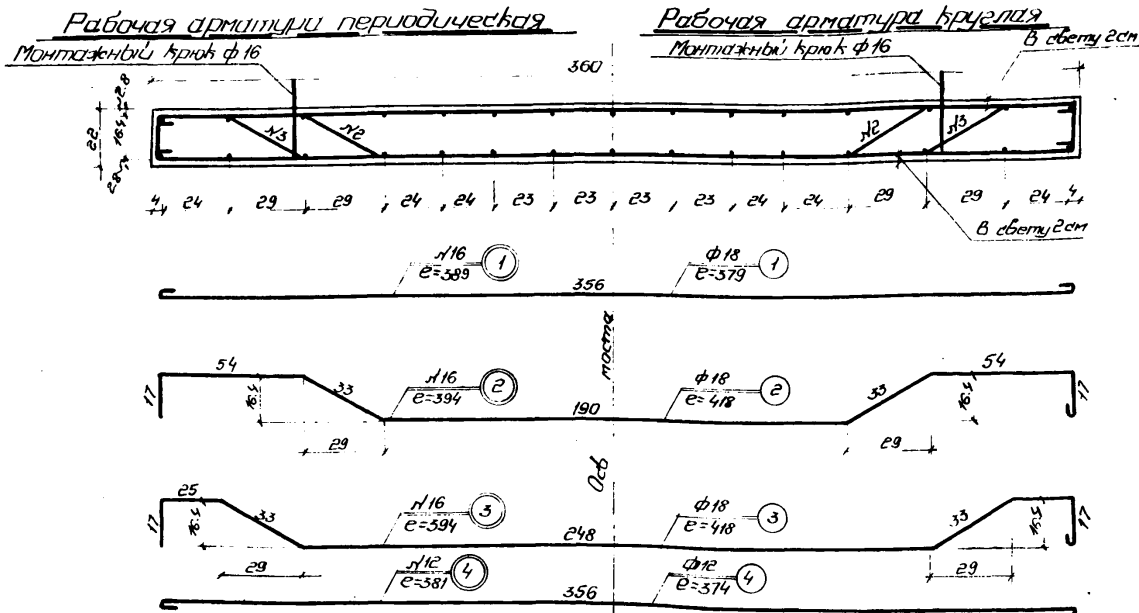 Рабочая арматури периодическая
Рабочая арматура круглая
Монтажный крюк ф16
Монтажный крюк ф16
В свету 2см
360
22
2.8
16.4
2.8
N3
N2
N2
N3
4 24 29 29 24 24 23 23 23 23 24 24 29 29 24 4
В свету 2см
N16
e=389
1
ф18
e=379
1
356
моста
54
17
16.4
33
29
N16
e=394
2
190
ф18
e=418
2
33
29
16.4
54
17
Ось
25
17
16.4
33
29
N16
e=394
3
248
ф18
e=418
3
33
29
16.4
17
N12
e=381
4
356
ф12
e=374
4